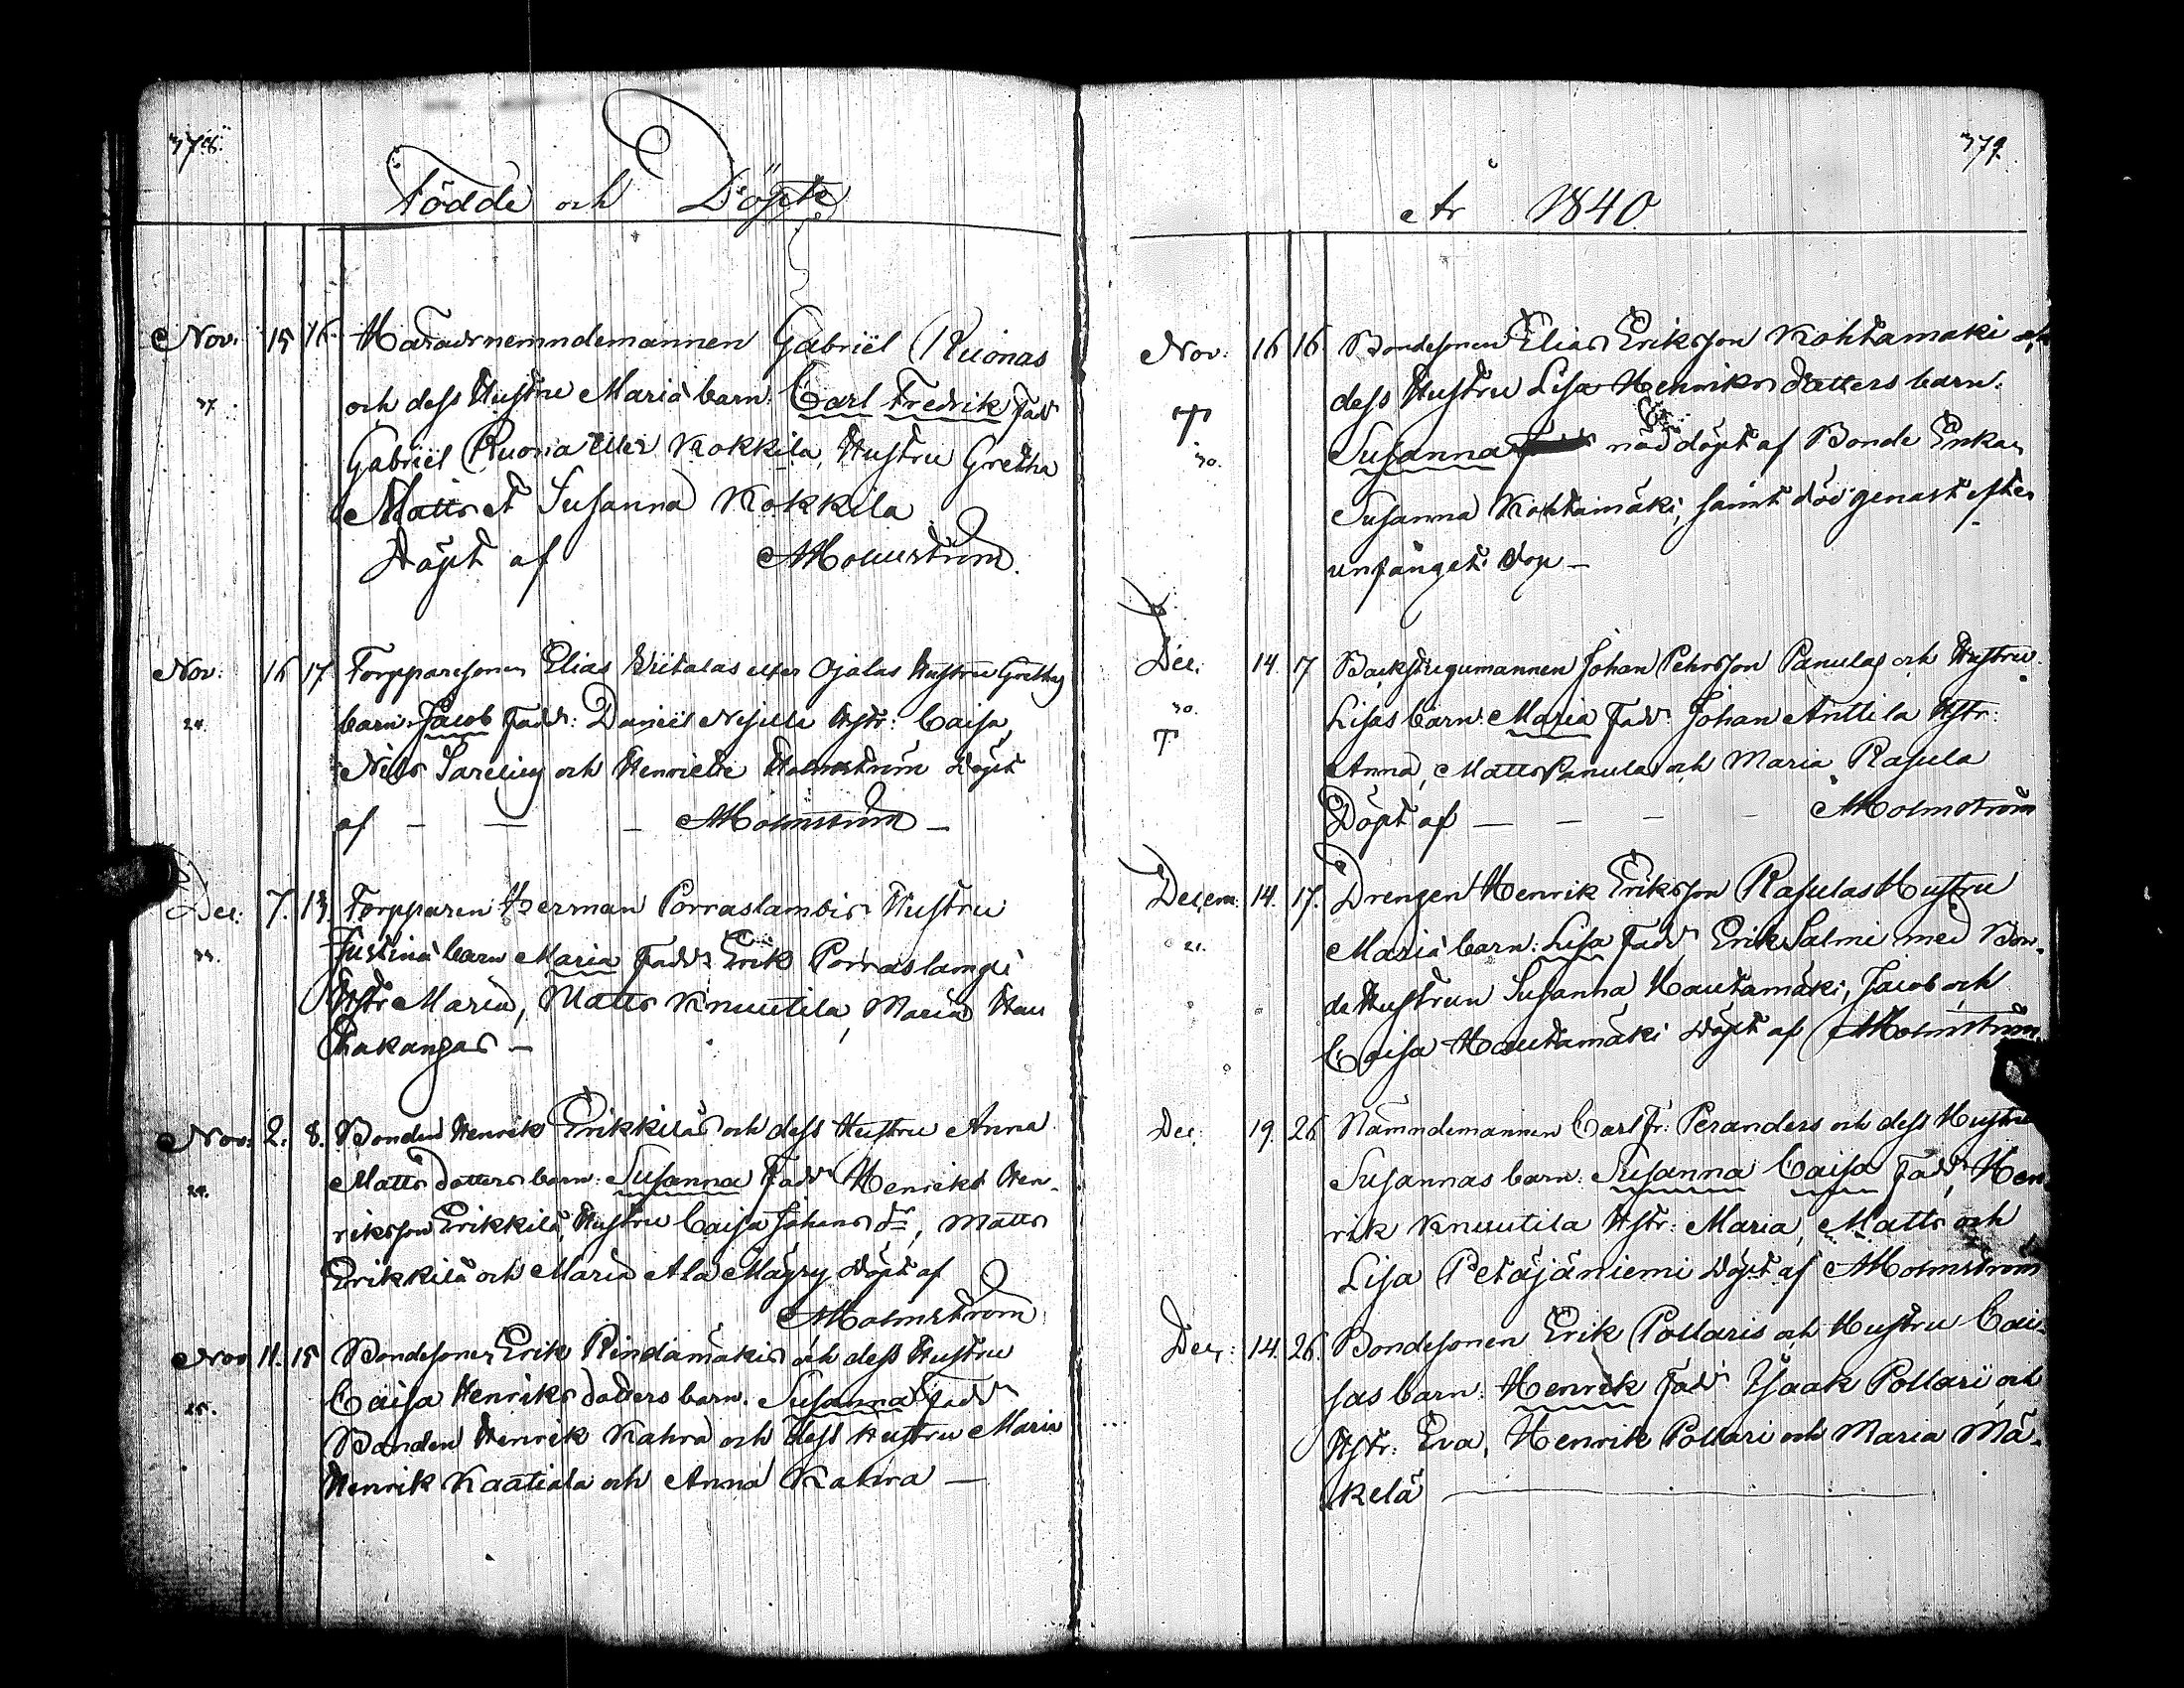 378.
Födde och Döpte
Nov. 15 16. Häradsnemndemannen Gabriel Ruonas
37. och dess Hustru Marias barn: Carl Fredrik Fadd
Gabriel Ruona eller Kokkila, Hustru Gretha
Matts et Susanna Kokkila
Döpt af AHolmström.
Nov: 16 17 Torpparesonen Elias Viitalas eller Ojalas Hustru Grethas
24. barn: Jacob Fadd: Daniel Nysula Hstr: Caisa,
Nils Sareliny och Henriette Holmström Döpt
af — — — AHolmström —
Dec: 7. 13. Torpparen Herman Porraslambis Hustru
33. Justinas barn Maria Fadd: Erik Porraslampi
Hstr Maria, Matts Knuutila, Maria Hau
takangas —
Nov: 2. 8. Bonden Henrik Erikkiläs och dess Hustru Anna
24. Matts dotters barn: Susanna Fadd Henrik Hen-
riksson Erikkilä, Hustru Caisa Johans dr, Matts
Erikkilä och Maria Ala Mäyry Döpt af
AHolmström
Nov 11. 15 Bondesonen Erik Rindamäkis och dess Hustru
25. Caisa Henriks dotters barn. Susanna Fadd
Bonden Henrik Kahra och dess Hustru Maria
Henrik Kaatiala och Anna Kahra —
379.
År 1840
Nov: 16 16. Bondesonen Elias Eriksson Kohtamäki och
dess Hustru Lisa Henriks dotters barn:
30. Susanna nöddöpt af Bonde Enkan
Susanna Kohtamäki, samt död genast efter
undfånget dop —
Dec. 14. 17 Backstugumannen Johan Pehrsson Panulas och Hustru
30. Lisas barn: Maria Fadd: Johan Anttila Hstr:
Anna, Matts Panula och Maria Rasula
Döpt af — — — — AHolmström
Decem: 14. 17. Drengen Henrik Eriksson Rasulas Hustru
21. Marias barn: Lisa Fadd Erik Salmi med Bon-
de Hustrun Susanna Hautamäki, Jacob och
Caisa Hautamäki Döpt af AHolmström
Dec. 19. 26 Nämndemannen Carl Fr: Peranders och dess Hustru
Susannas barn: Susanna Caisa Fadd Hen-
rik Knuutila Hstr: Maria, Matts och
Lisa Petäjäniemi Döpt af AHolmström
Dec: 14. 26. Bondesonen Erik Pollaris och Hustru Cai-
sas barn: Henrik Fadd Isaak Pollari och
Hstr: Eva, Henrik Pollari och Maria Mä-
kelä —